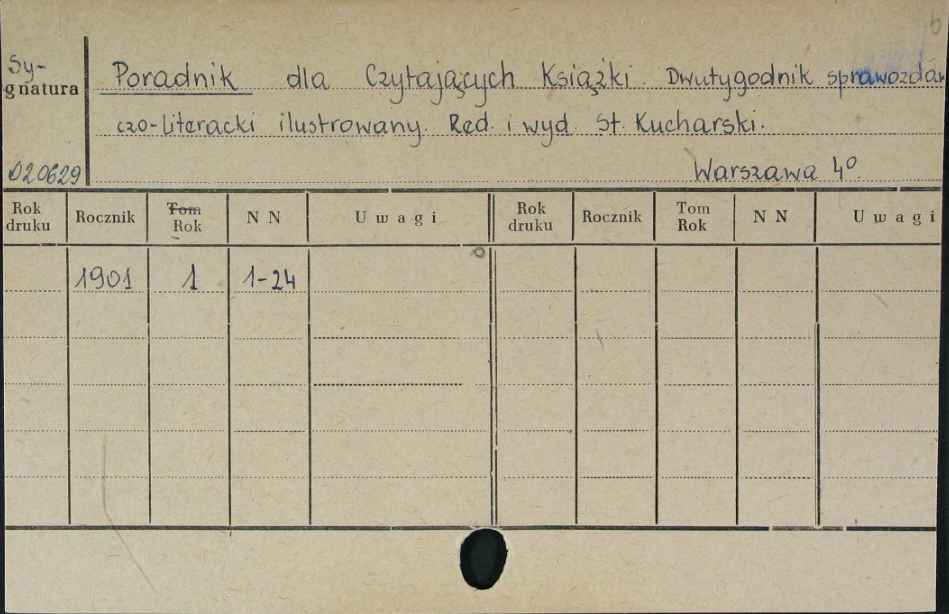 Sy-
gnatura
D20629
Poradnik dla Czytających Książki. Dwutygodnik sprawozdaw
czo-literacki ilustrowany. Red. i wyd. St. Kucharski.
Warszawa 4º
Rok druku Rocznik Tom Rok NN Uwagi Rok druku Rocznik Tom Rok NN Uwagi
1901 1 1-24